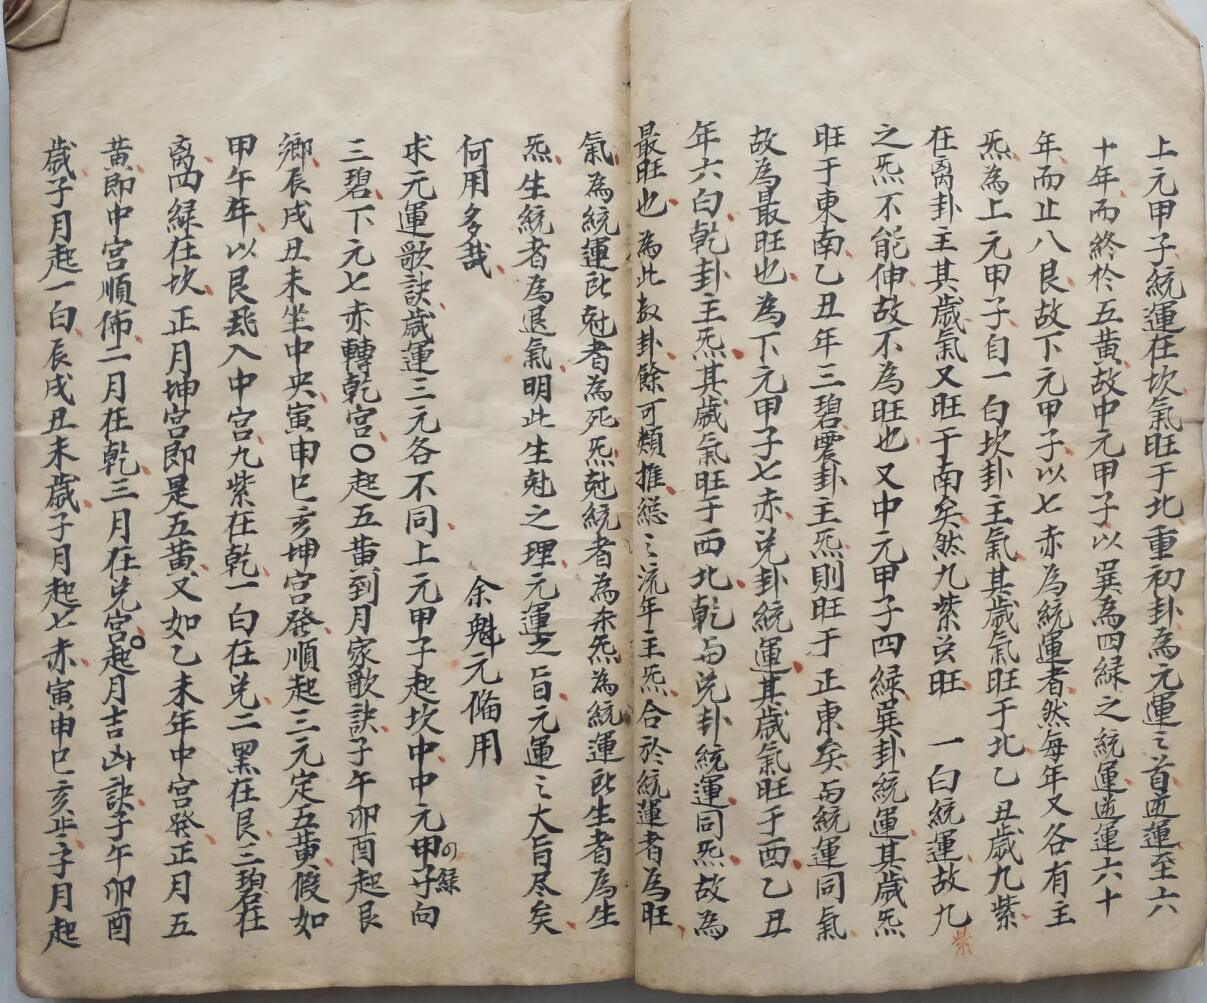 上元甲子統運在坎氣旺于北重初卦為元運之首逆運至六
十年而終於五黄故中元甲子以巽為四緑之統運逆運六十
年而止八艮故下元甲子以七赤為統運者然每年又各有主
炁為上元甲子自一白坎卦主氣其歲氣旺于北乙丑歲九紫
在离卦主其歲氣又旺于南矣然九紫旺一白統運故九紫
之炁不能伸故不為旺也又中元甲子四緑巽卦統運其歲炁
旺于東南乙丑年三碧震卦主炁則旺于正東矣而統運同氣
故為最旺也為下元甲子七赤兑卦統運其歲氣旺于西乙丑
年六白乾卦主炁其歲氣旺于西北乾与兑卦統運同炁故為
最旺也為此数卦餘可類推總之流年主炁合於統運者為旺
氣為統運所尅者為死炁尅統者為杀炁為統運所生者為生
炁生統者為退氣明此生尅之理元運之旨元運之大旨尽矣
何用多哉
余魁元俻用
求元運歌訣歲運三元各不同上元甲子起坎中中元甲子向
の緑
三碧下元七赤轉乾宫〇起五黄到月家歌訣子午卯酉起艮
鄉辰戌丑未坐中央寅申巳亥坤宫發順起三元定五黄假如
甲午年以艮入中宫九紫在乾一白在兑二黑在艮三碧在
离四緑在坎正月坤宫即是五黄又如乙未年中宫發正月五
黄即中宫順佈二月在乾三月在兑宫〇起月吉凶訣子午卯酉
歲子月起一白辰戌丑未歲子月起七赤寅申巳亥子月起